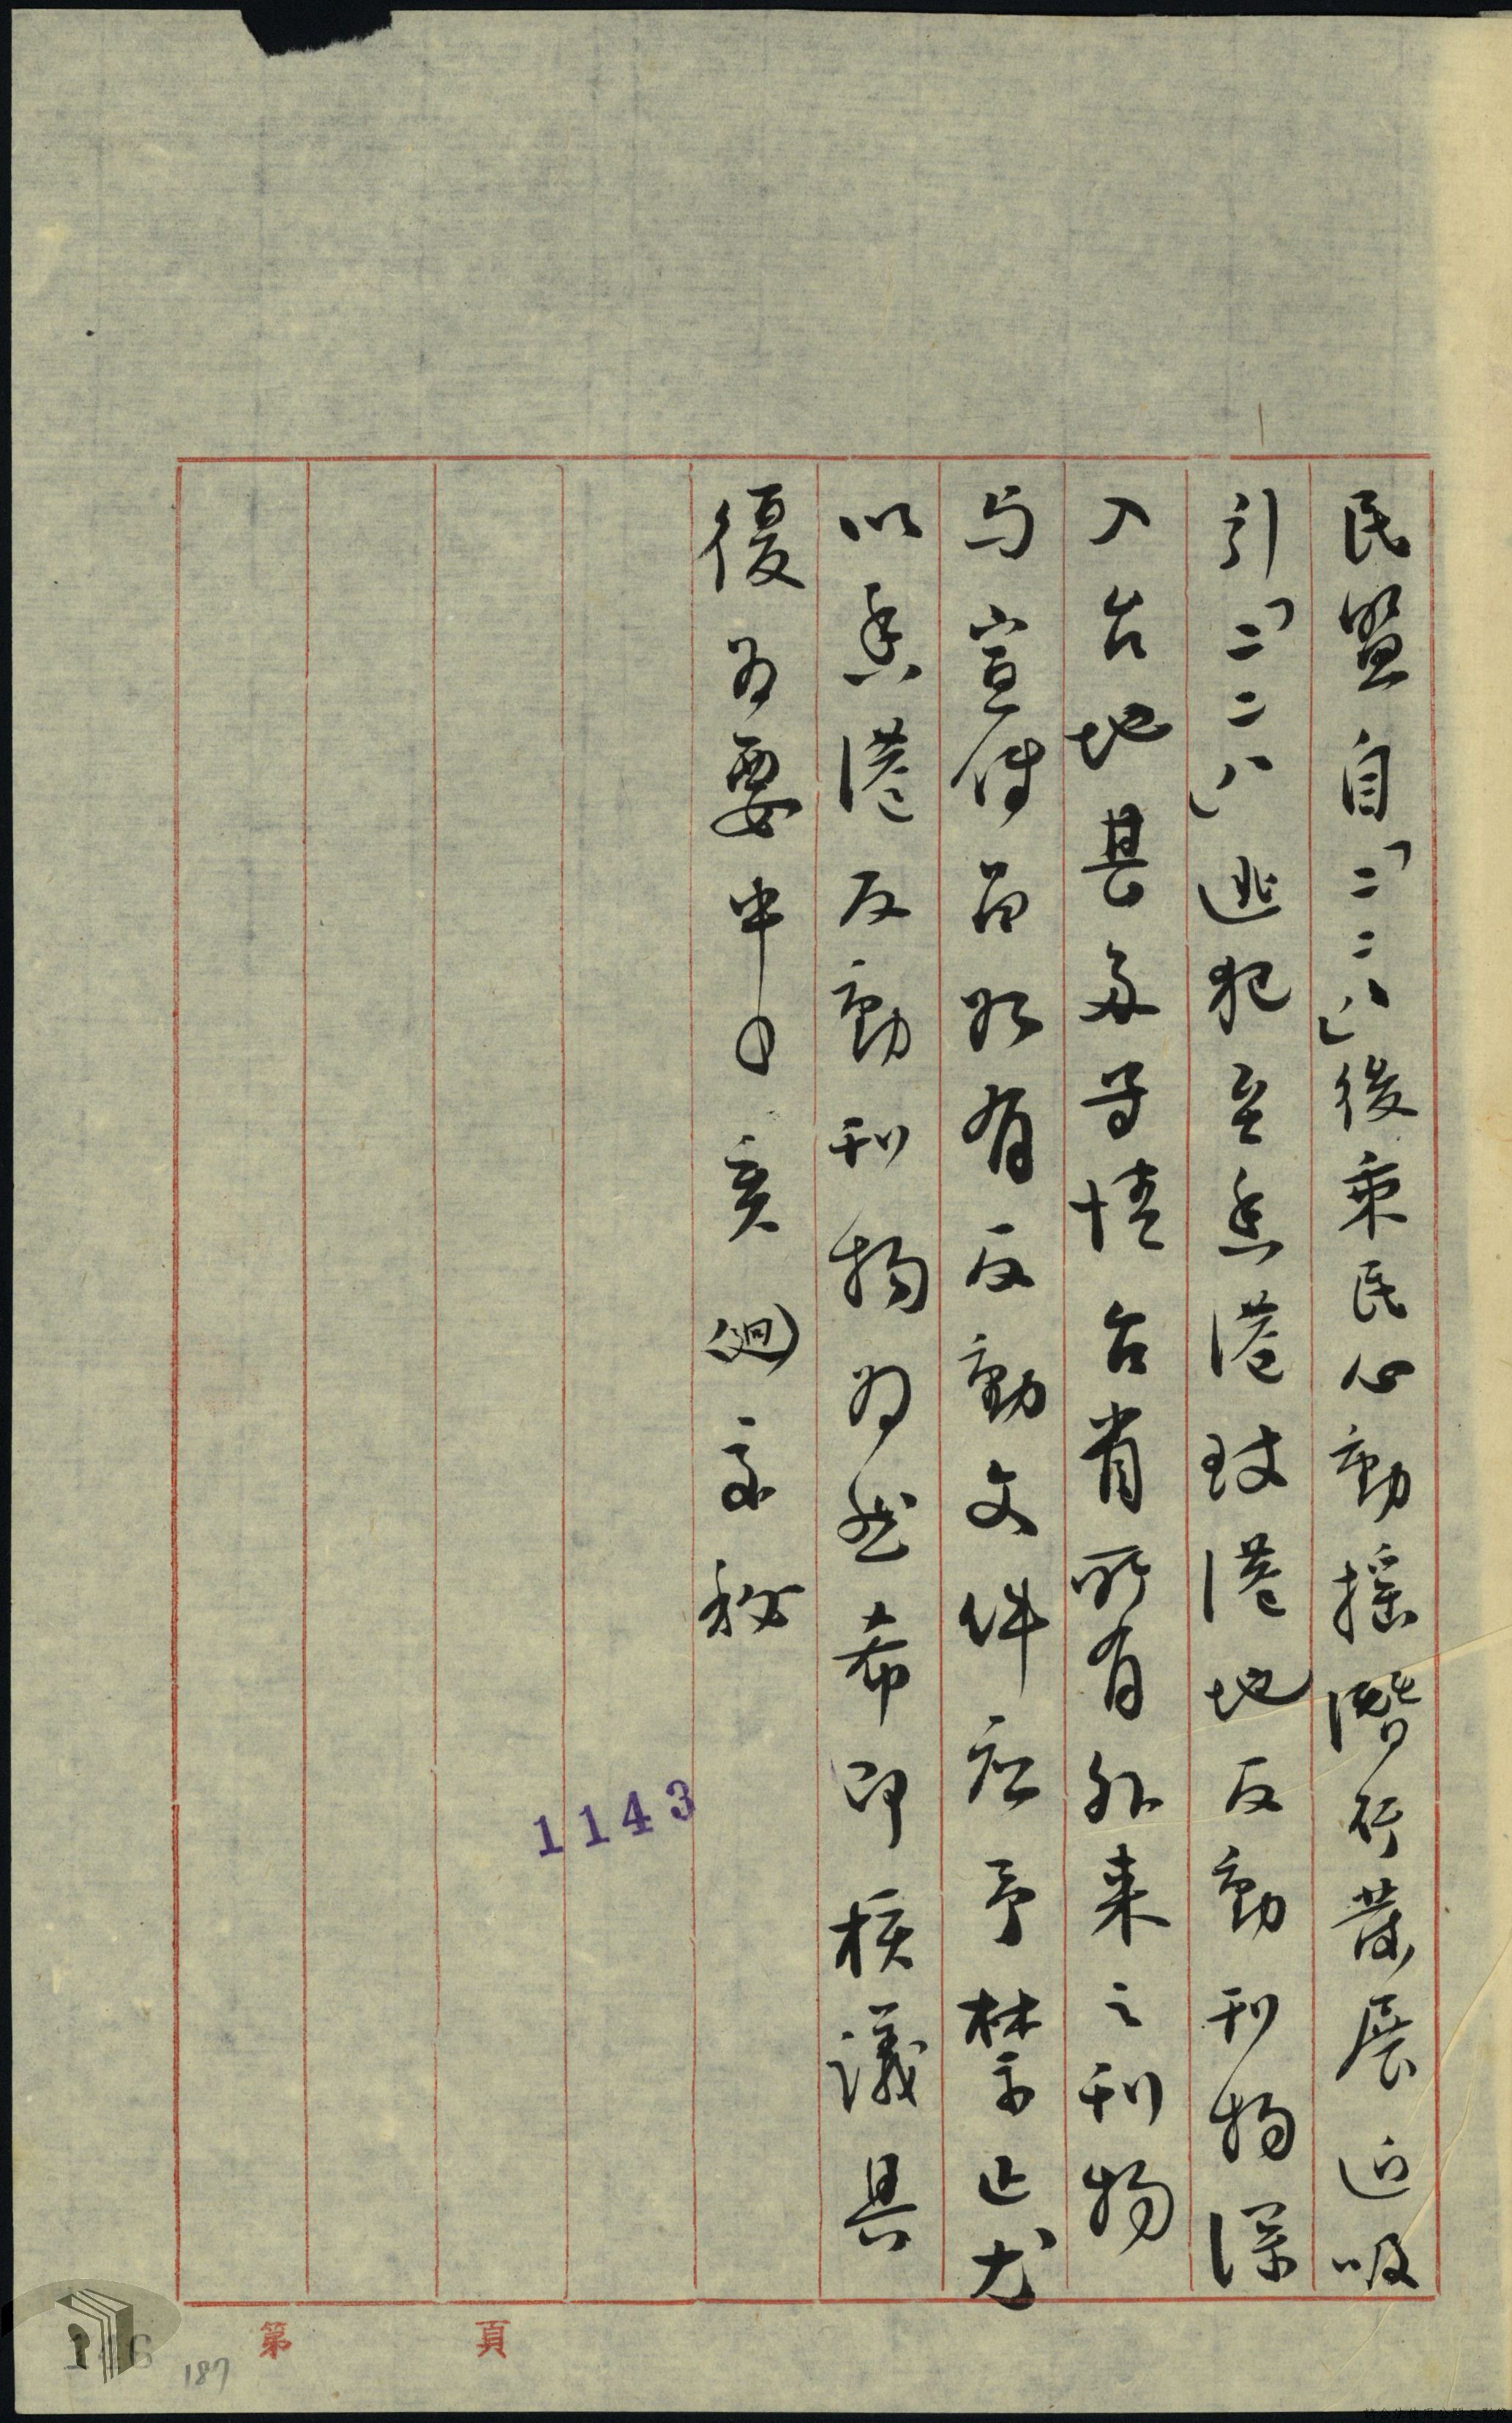 民盟自「二二八」後乘民心動搖潛行發展近吸
引「二二八」逃犯至香港致港地反動刊物深
入台地甚多等情台省所有外來之刊物
与宣傳品如有反動文件应予禁止尤
以香港反動刊物为然希即核議具
復为要中〇亥(迥)京秘
1143
第 頁
187